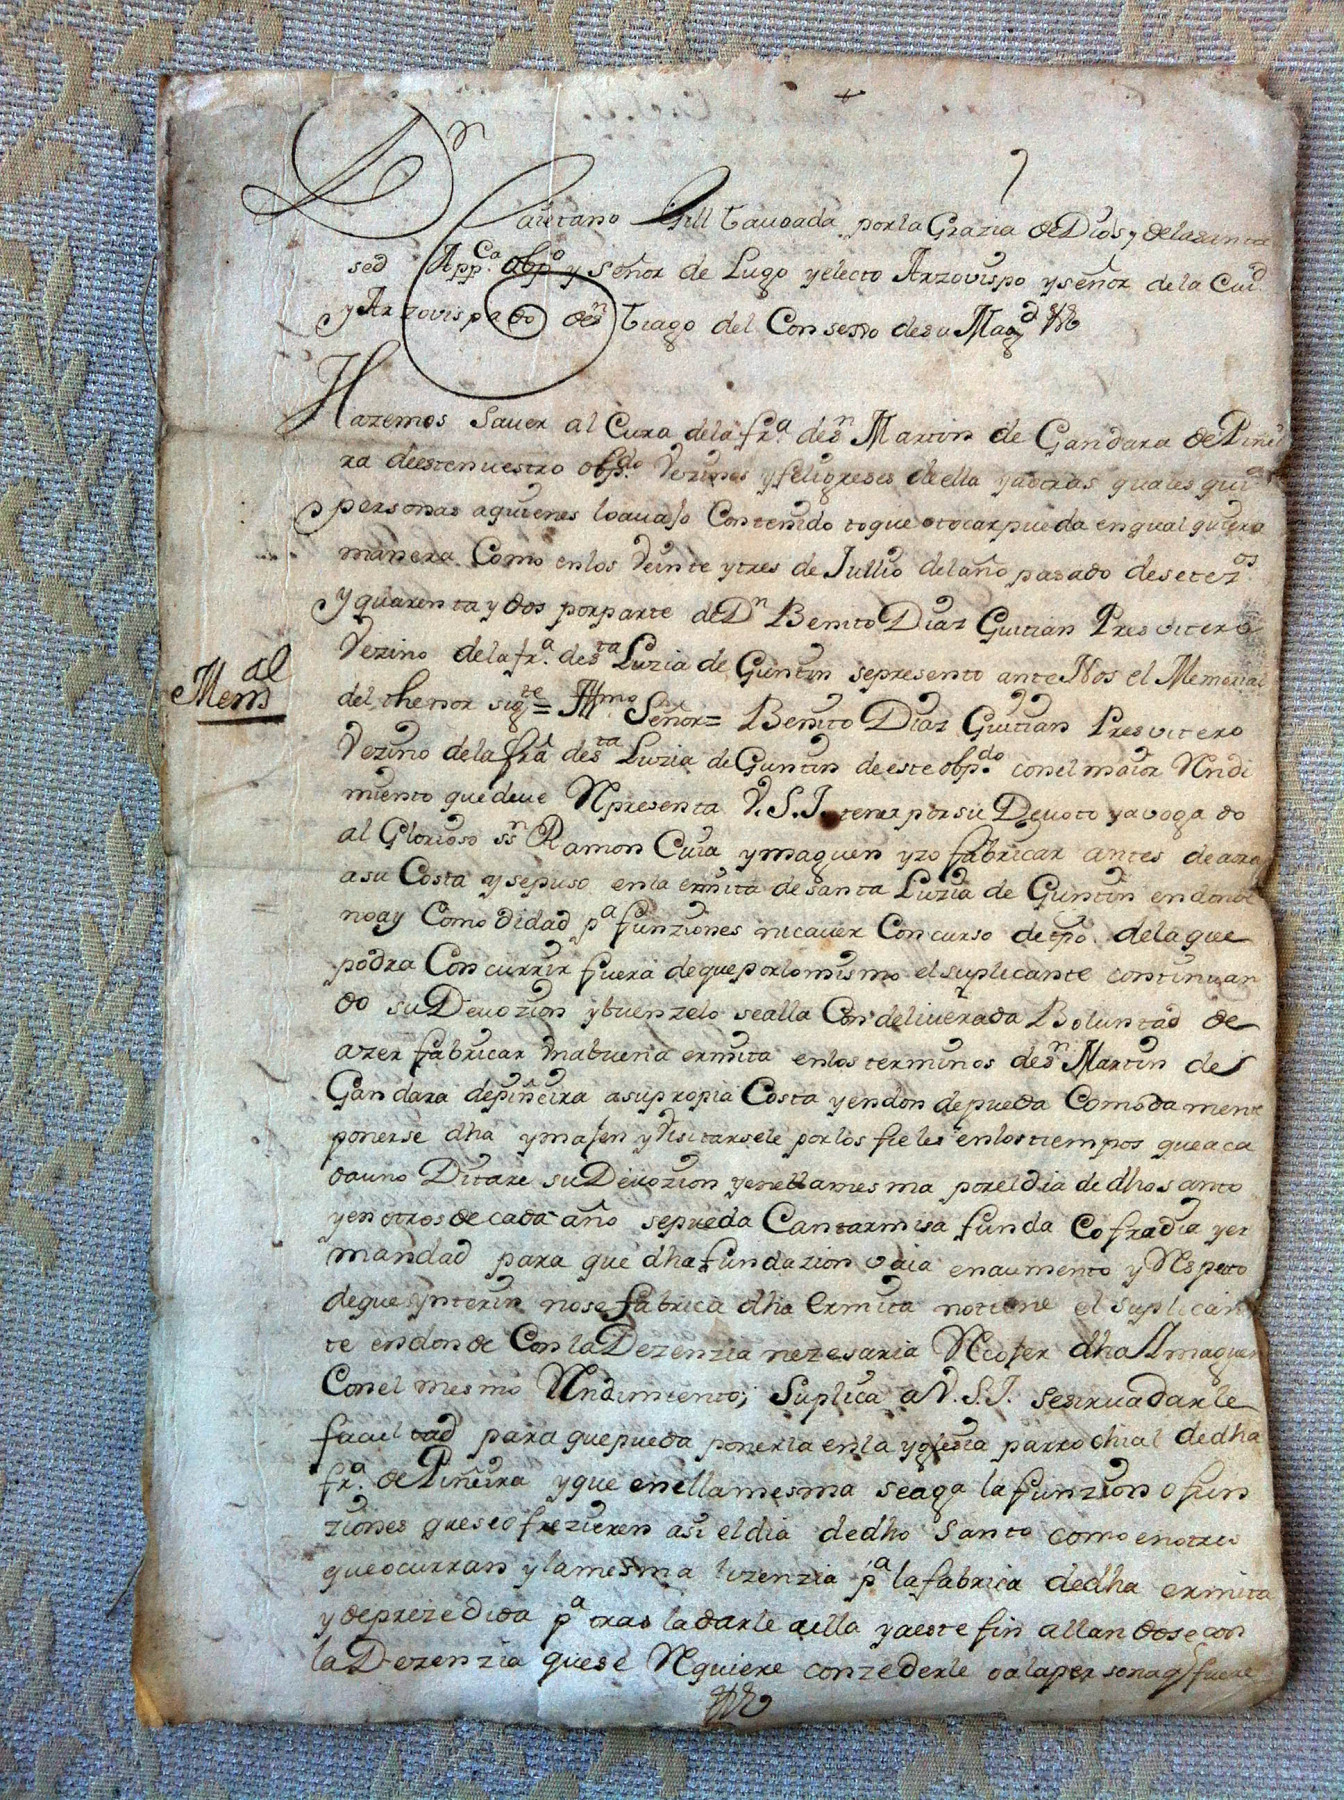 Dn Caietano Gill Tauoada por la Grazia de Dios y de la santa
sed Appca. obpo y señor de Lugo y electo Arzovispo y señor de la Ciud
y Arzovispado de sn Tiago del Consexo de su Magd
Hazemos sauer al Cura de la fra. de sn Martin de Gandara de Piñei
ra de este nuestro obpdo. Vezinos y feligreses de ella y a otras quales quia
personas a quienes lo avajo Contenido toque o tocar pueda en qual quiera
manera Como en los Veinte y tres de Jullio del año pasado de setezos
y quarenta y dos por parte de Dn Benito Diaz Guitian Presvitero
Vezino de la fra. de sta Luzia de Guntin se presento ante Nos el Memorial
Memal
del thenor sigte = Illmo Señor = Benito Diaz Guitian Presvitero
Vezino de la fra de sta Luzia de Guntin de este obpdo. con el maior Rndi
miento que deue Rpresenta V. S. I. tener por su Deuoto y avogado
al Glorioso sn Ramon Cuia ymaguen yzo fabricar antes de aora
a su Costa y se puso en la ermita de santa Luzia de Guntin en donde
no ay Como didad pa funziones ni cauer Concurso de tpo. de la que
podra Concurrir fuera de que por lo mismo el suplicante continuan
do su Deuozion y buen zelo se alla Con deliuerada Boluntad de
azer fabricar vna buena ermita en los terminos de sn Martin de
Gandara de piñeira a su propia Costa y en donde pueda Comodamente
ponerse dha ymajen y Visitarsele por los fieles en los tiempos que a ca
da uno Ditare su Deuozion y en ella mesma por el dia de dho santo
y en otros de cada año se pueda Cantar misa funda Cofradia y er
mandad para que dha fundazion vaia en aumento y Rspeto
de que ynterin no se fabrica dha Ermita no tiene el suplican
te en donde Con la Dezenzia nezesaria Rcojer dha Ymaguen
Con el mesmo Rndimiento; Suplica a V. S. I. se sirua darle
facultad para que pueda ponerla en la yglesia parrochial de dha
fra. de Piñeira y que en ella mesma se aga la funzion o fun
ziones que se ofrezieren asi el dia de dho Santo como en otros
que ocurran y la mesma lizenzia pa la fabrica de dha ermita
y de prezedida pa trasladarle a ella y a este fin allandose con
la Dezenzia que se Rquiere conzederle o a la persona q fuere